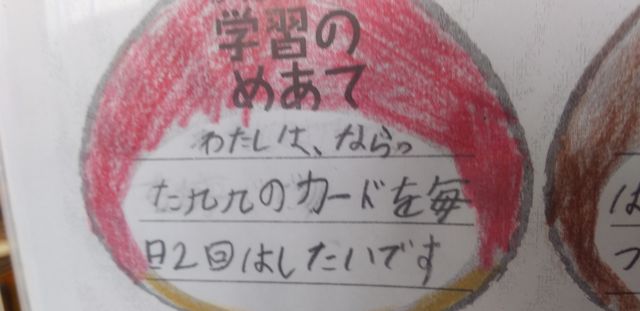 学習の
めあて
わたしは、ならっ
た九九のカードを毎
日2回はしたいです
は
つ